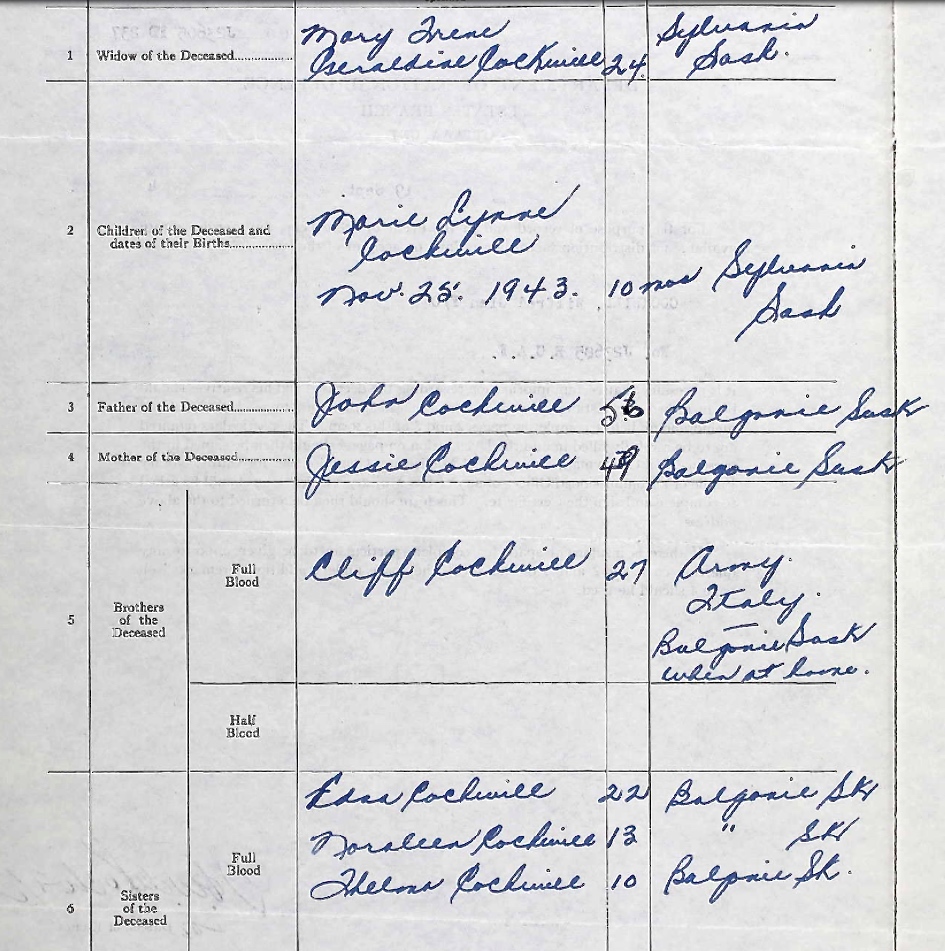 1 Widow of the Deceased.............. Mary Irene
Geraldine Cockwill 24. Sylvania
Sask.
2 Children of the Deceased and
dates of their Births............... Marie Lynne
Cockwill
Nov. 25. 1943. 10 mos Sylvania
Sask
3 Father of the Deceased.............. John Cockwill Balgonie Sask
4 Mother of the Deceased............. Jessie Cockwill 49 Balgonie Sask
5 Brothers
of the
Deceased
Full
Blood
Cliff Cockwill 27 Army.
Italy.
Balgonie Sask
when at home.
Half
Blood
6 Sisters
of the
Deceased
Full
Blood
Edna Cockwill 22 Balgonie Sk
Noraleen Cockwill 13 " Sk
Thelma Cockwill 10 Balgonie Sk.